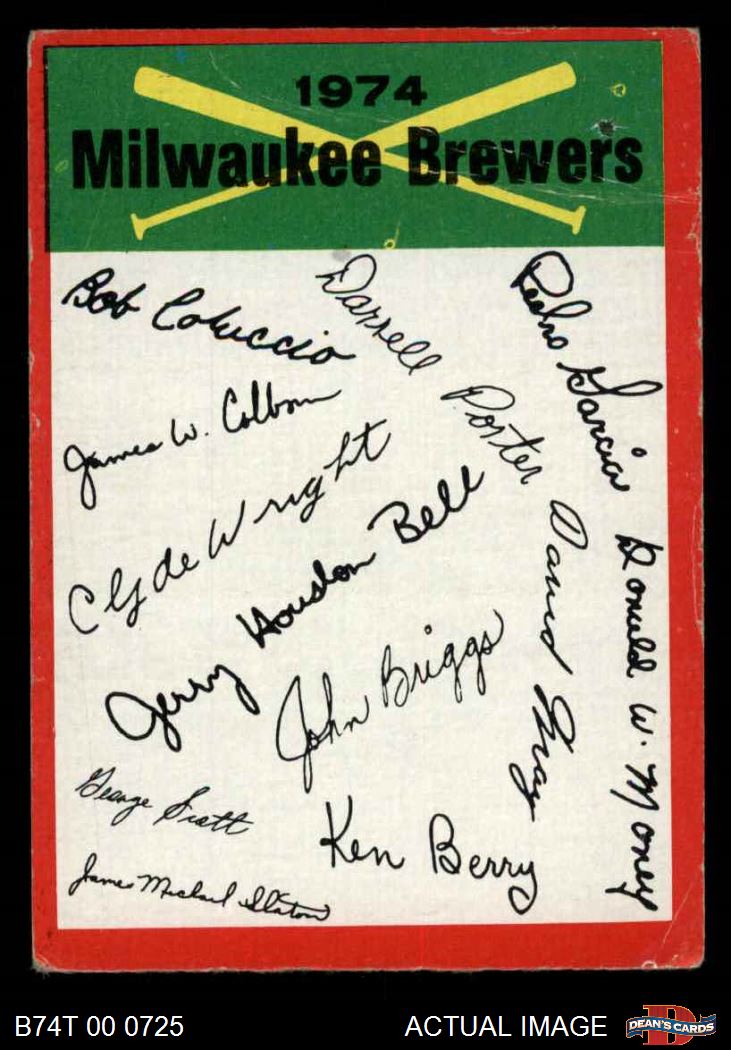 1974
Milwaukee Brewers
Bob Coluccio
Darrell Porter
Pedro Garcia
James W. Colborn
Clyde Wright
Jerry Houston Bell
David May
Donald W. Money
John Briggs
George Scott
Ken Berry
James Michael Slaton
B74T 00 0725
ACTUAL IMAGE
D
DEAN'S CARDS